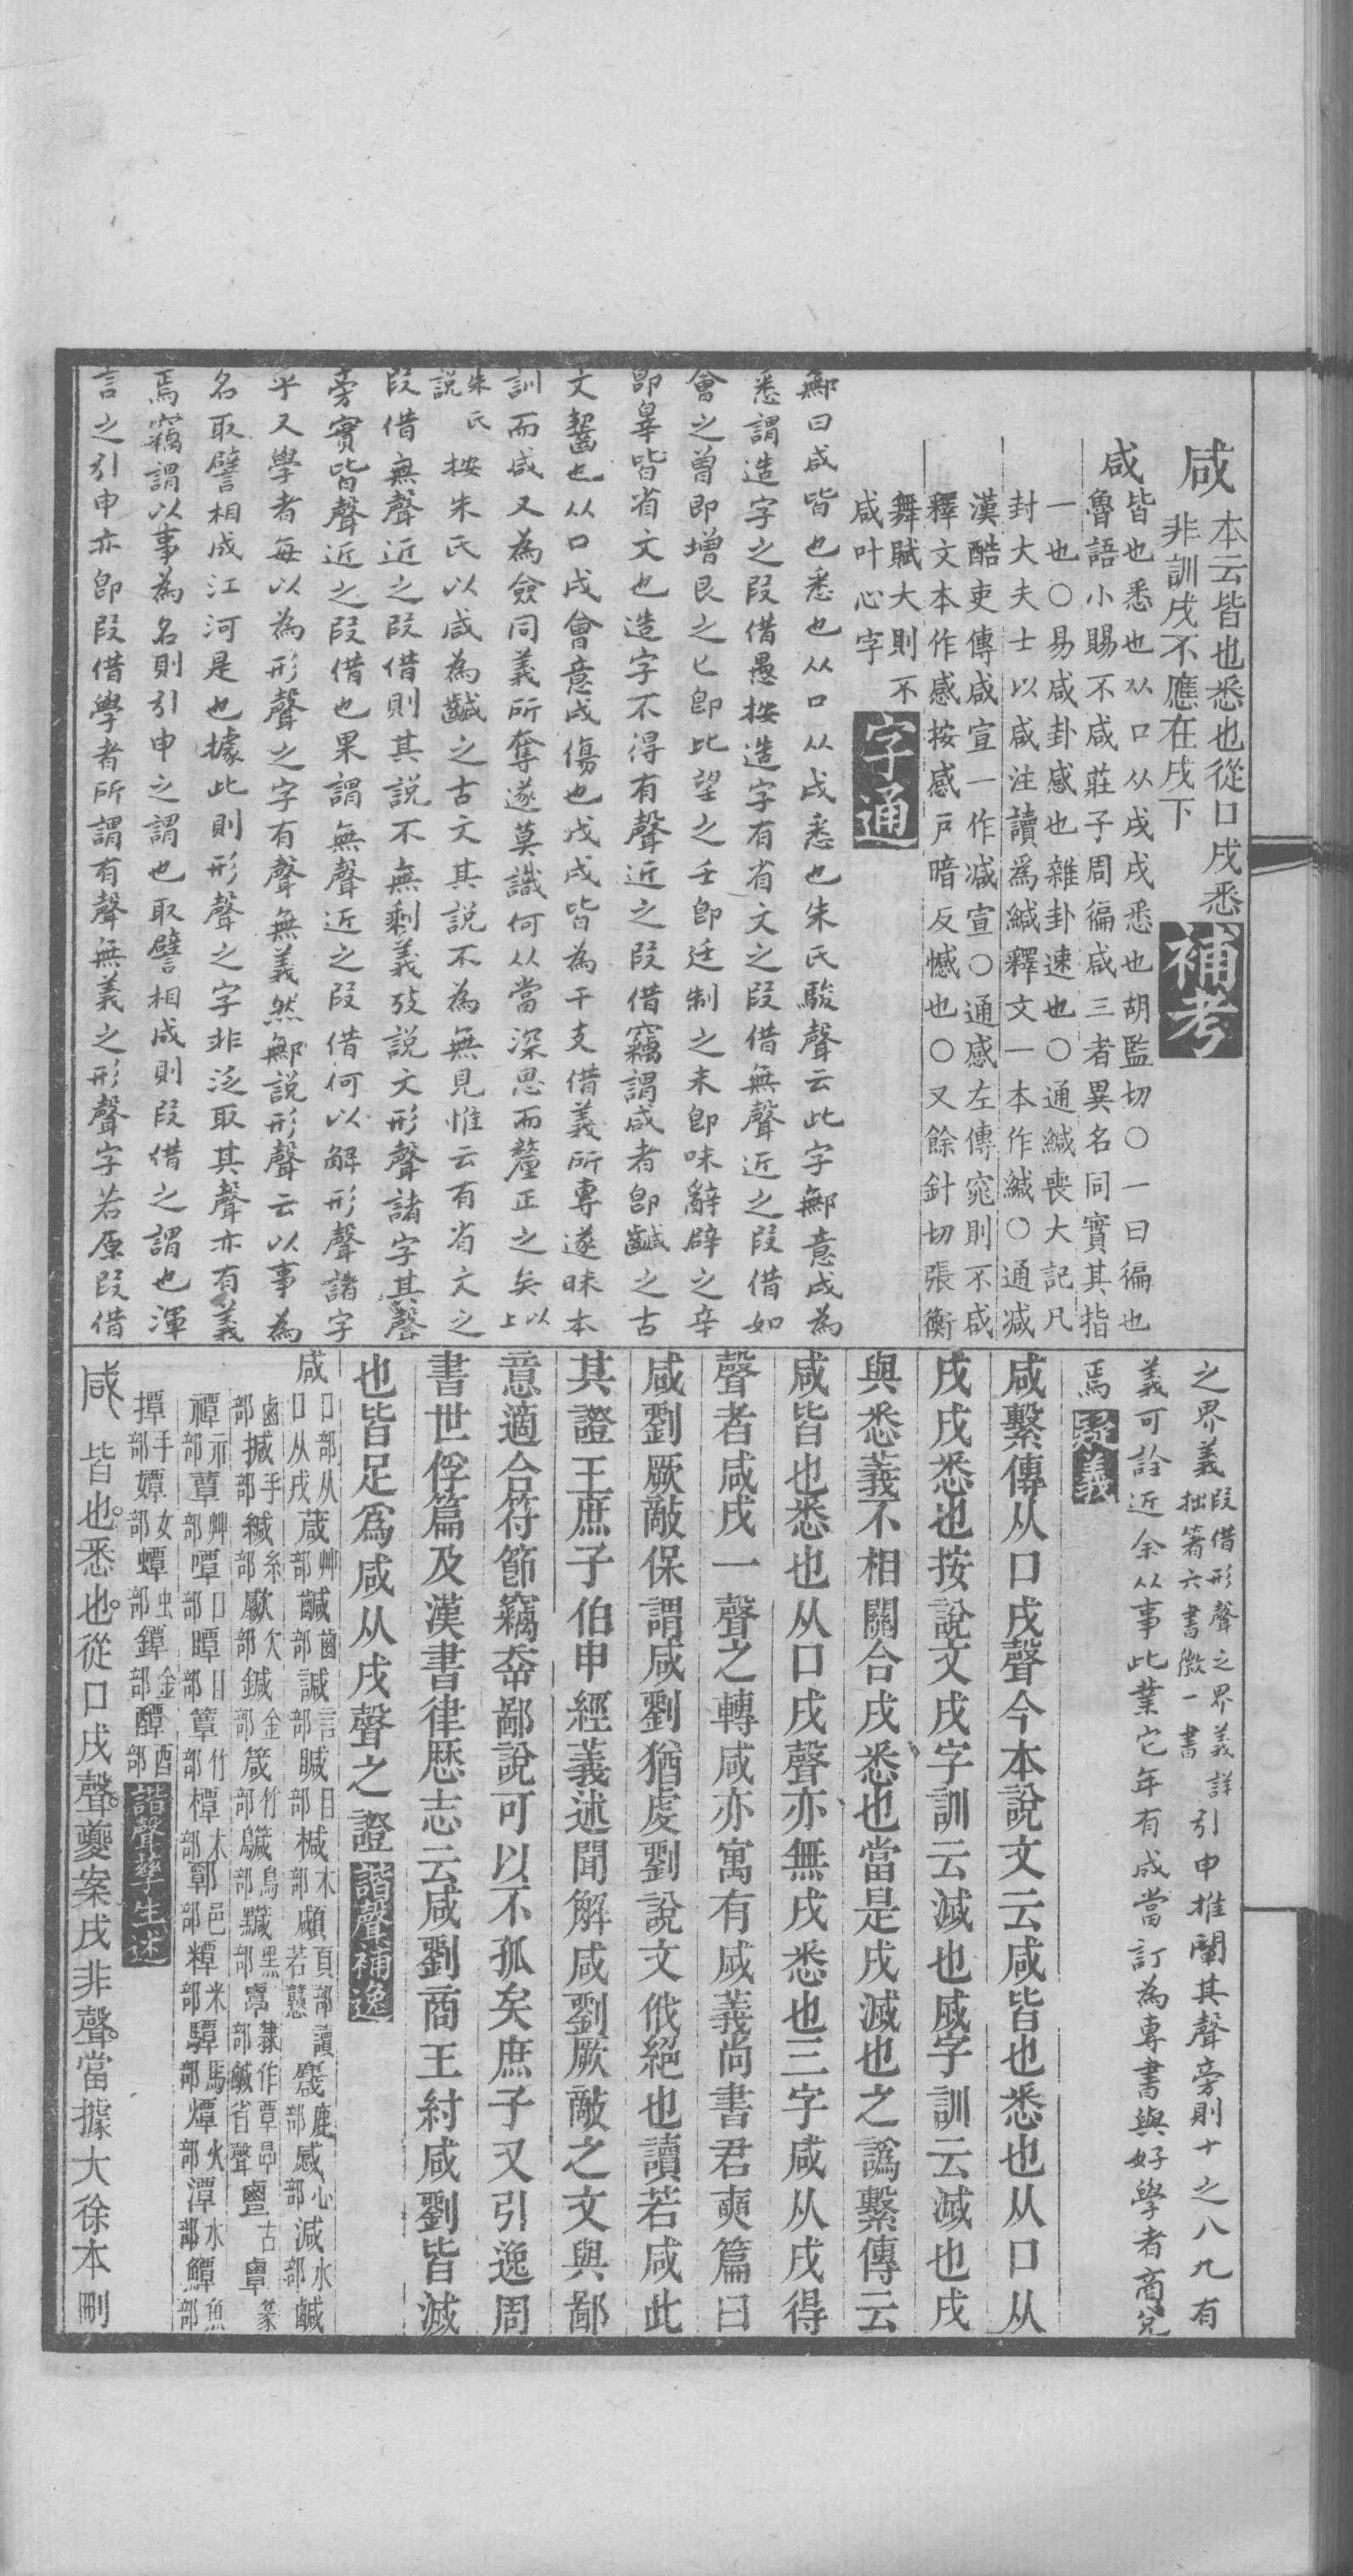 咸
本云皆也悉也從口戌悉
非訓戌不應在戌下
補考
咸
皆也悉也从口从戌戌悉也胡監切○一曰徧也
魯語小賜不咸莊子周徧咸三者異名同實其指
一也○易咸卦感也雜卦速也○通緘喪大記凡
封大夫士以咸注讀爲緘釋文一本作緘○通減
漢酷吏傳咸宣一作減宣○通感左傳窕則不咸
釋文本作感按感戸暗反憾也○又餘針切張衡
舞賦大則不
咸叶心字
字通
鄦曰咸皆也悉也从口从戌悉也朱氏駿聲云此字鄦意戌為
悉謂造字之叚借愚按造字有省文之叚借無聲近之叚借如
會之曾即增艮之匕卽比望之壬卽廷制之未卽味辭辟之辛
卽辠皆省文也造字不得有聲近之叚借竊謂咸者卽鹹之古
文齧也从口戌會意戌傷也戊戌皆為干支借義所專遂昧本
訓而咸又為僉同義所奪遂莫識何从當深思而釐正之矣以上
朱氏說
按朱氏以咸為鹹之古文其說不為無見惟云有省文之
叚借無聲近之叚借則其說不無剩義攷說文形聲諸字其聲
旁實皆聲近之叚借也果謂無聲近之叚借何以解形聲諸字
乎又學者每以為形聲之字有聲無義然鄦說形聲云以事為
名取譬相成江河是也據此則形聲之字非泛取其聲亦有義
焉竊謂以事為名則引申之謂也取譬相成則叚借之謂也渾
言之引申亦卽叚借學者所謂有聲無義之形聲字若原叚借
之界義
叚借形聲之界義詳
拙著六書微一書
引申推闡其聲旁則十之八九有
義可詮近余从事此業它年有成當訂為專書與好學者商兌
焉
叕義
咸繫傳从口戌聲今本說文云咸皆也悉也从口从
戌戌悉也按說文戌字訓云滅也烕字訓云滅也戌
與悉義不相關合戌悉也當是戌滅也之譌繫傳云
咸皆也悉也从口戌聲亦無戌悉也三字咸从戌得
聲者咸戌一聲之轉咸亦寓有烕義尚書君奭篇曰
咸劉厥敵保謂咸劉猶虔劉說文㦰絕也讀若咸此
其證王庶子伯申經義述聞解咸劉厥敵之文與鄙
意適合符節竊㚜鄙說可以不孤矣庶子又引逸周
書世俘篇及漢書律厯志云咸劉商王紂咸劉皆滅
也皆足爲咸从戌聲之證
諧聲補逸
咸
口部从
口从戌
葴
艸部
鹹
齒部
諴
言部
瞡
目部
椷
木部
顑
頁部讀
若戇
麙
鹿部
感
心部
減
水部
鹹
鹵部
摵
手部
緘
糸部
歞
欠部
鍼
金部
箴
竹部
鱵
鳥部
黬
黑部
覃
隸作覃
部鹹省聲
古
覃
篆
禫
示部
蕈
艸部
嘾
口部
瞫
目部
簟
竹部
橝
木部
鄿
邑部
糂
米部
驔
馬部
燂
火部
潭
水部
鱏
魚部
撢
手部
嬋
女部
蟫
虫部
鐔
金部
醰
酉部
諧聲孳生述
咸
皆也悉也從口戌聲夔案戌非聲當據大徐本刪